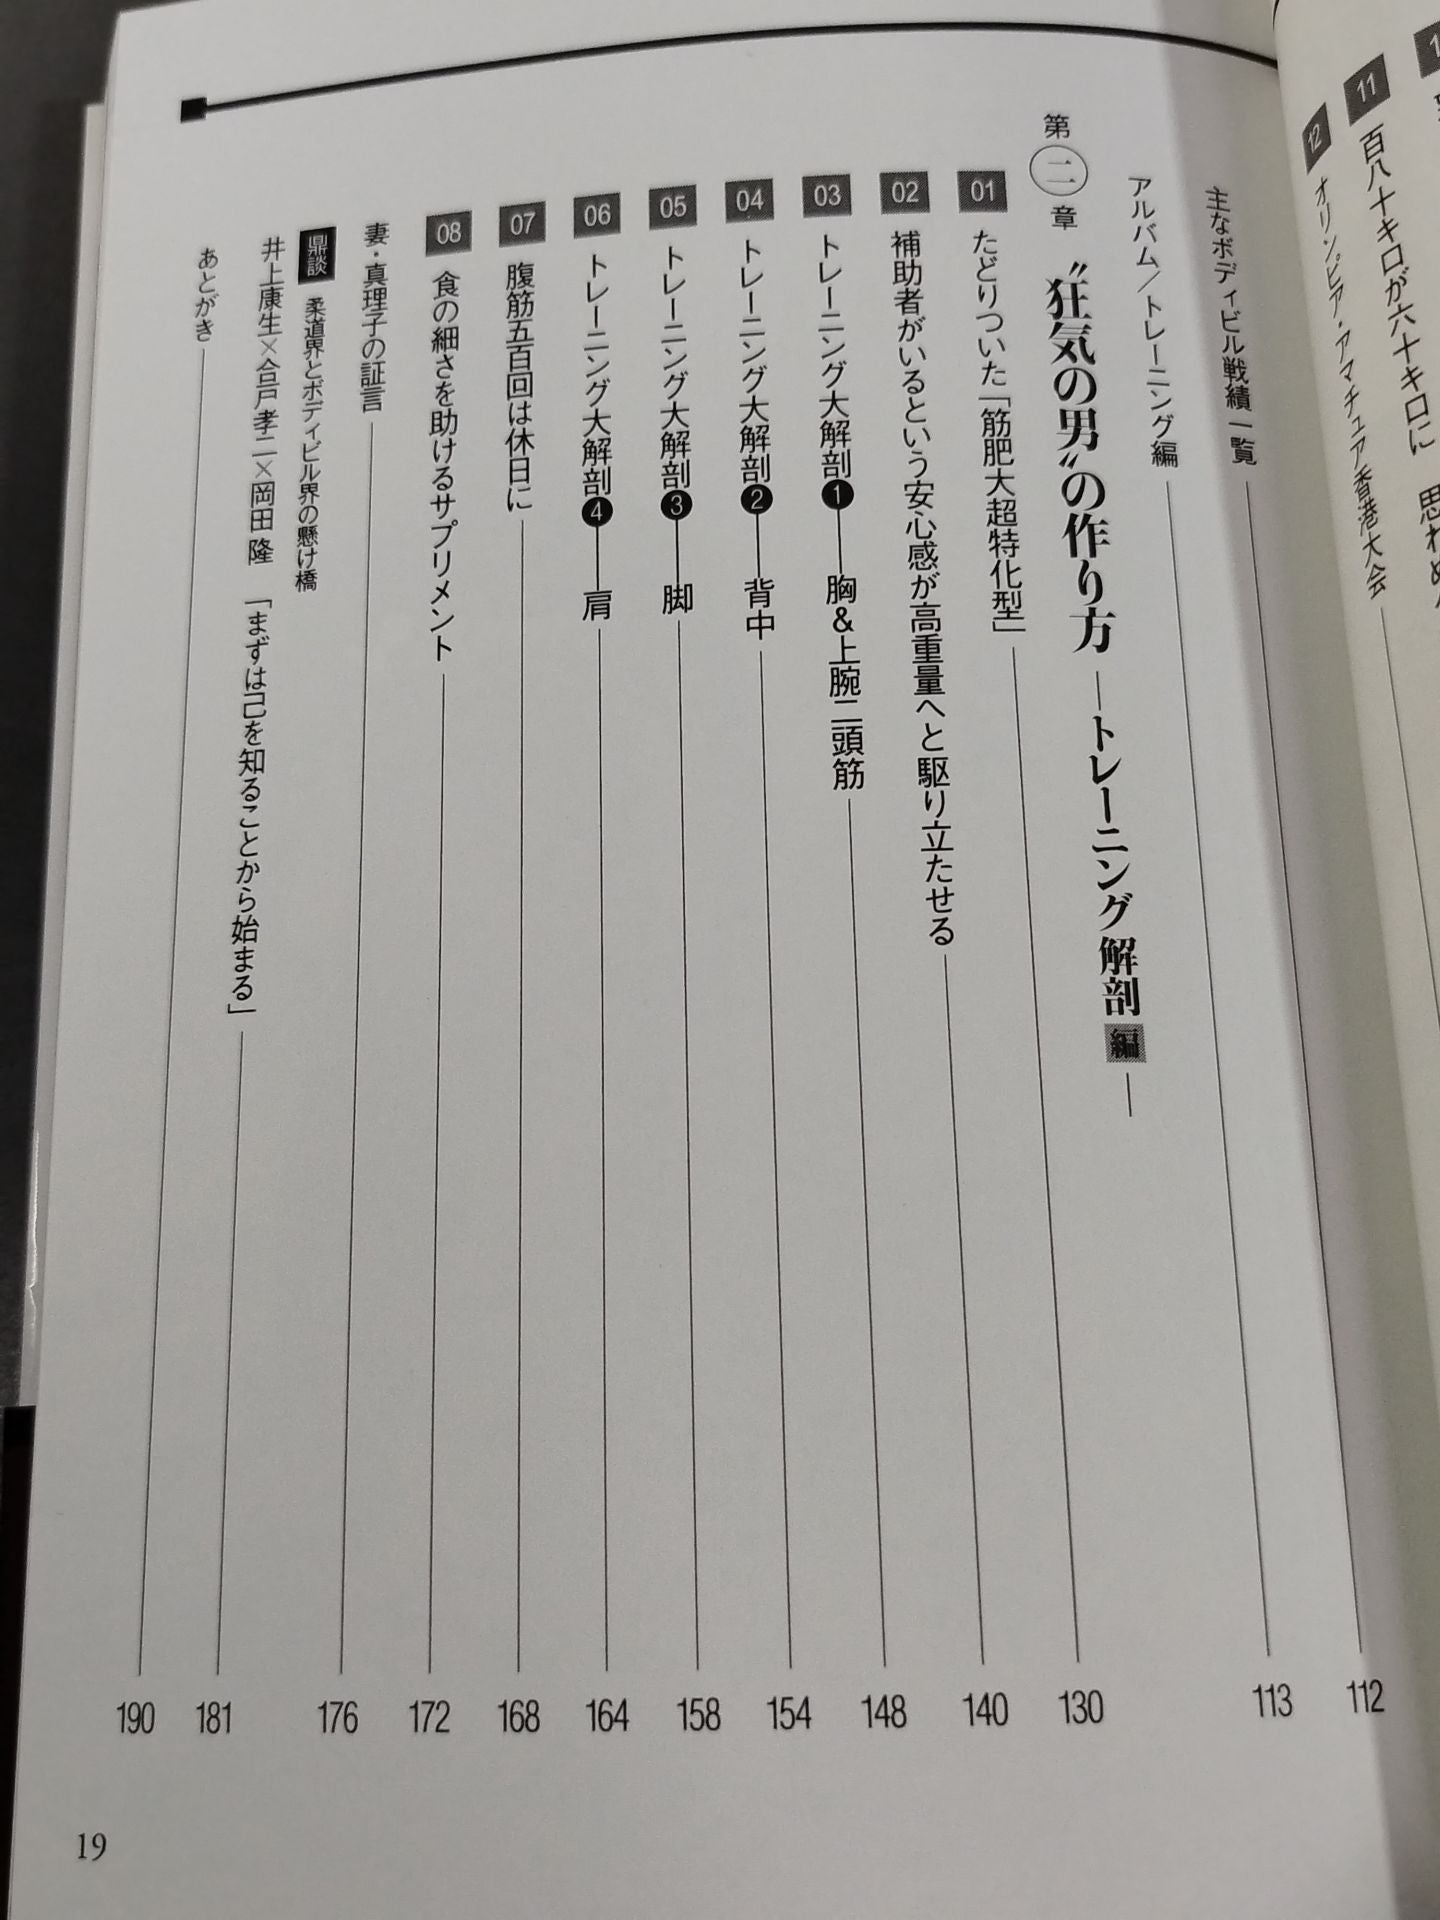 11 百八十キロが六十キロに 思わぬ
12 オリンピア・アマチュア香港大会
主なボディビル戦績一覧 112
アルバム／トレーニング編 113
第二章 〝狂気の男〟の作り方 ―トレーニング解剖編―
01 たどりついた「筋肥大超特化型」 130
02 補助者がいるという安心感が高重量へと駆り立たせる 140
03 トレーニング大解剖❶―胸&上腕二頭筋 148
04 トレーニング大解剖❷―背中 154
05 トレーニング大解剖❸―脚 158
06 トレーニング大解剖❹―肩 164
07 腹筋五百回は休日に 168
08 食の細さを助けるサプリメント 172
妻・真理子の証言 176
鼎談 柔道界とボディビル界の懸け橋
井上康生×合戸孝二×岡田 隆 「まずは己を知ることから始まる」 181
あとがき 190
19